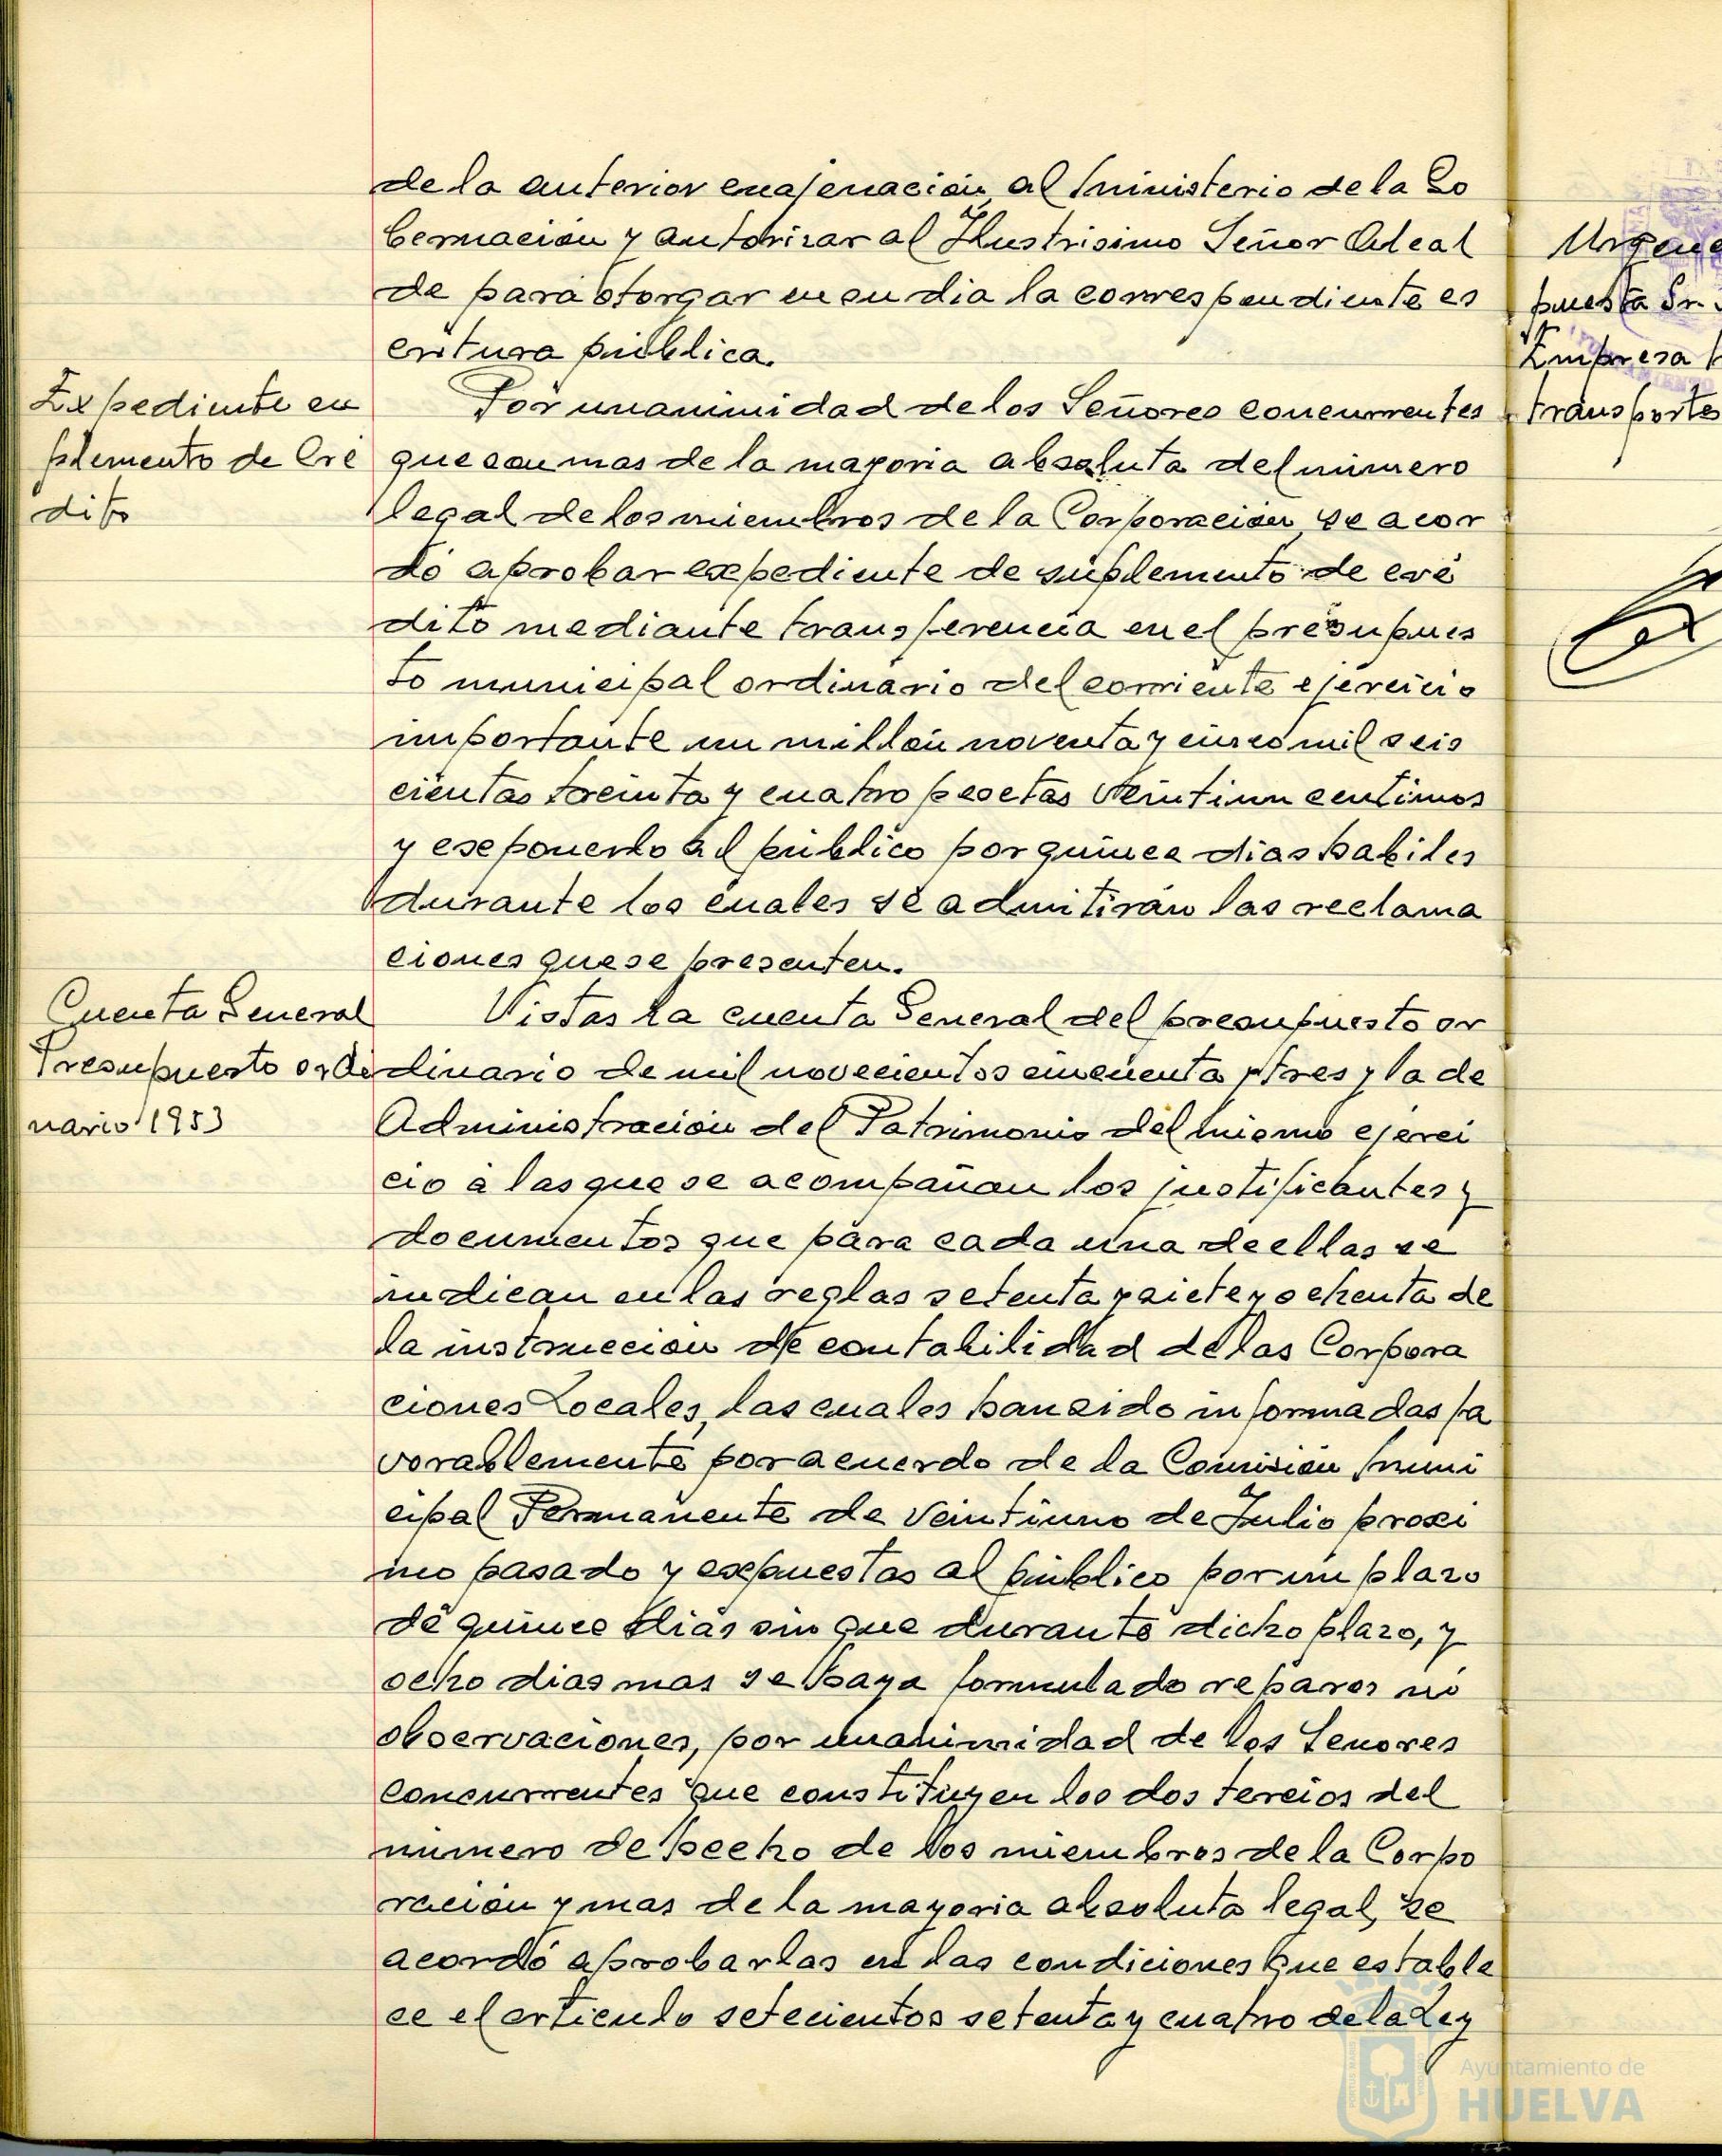 de la anterior enajenación, al ministerio de la Go
bernación y autorizar al Ilustrisimo Señor Alcal
de para otorgar en su dia la correspondiente es
critura pública.
Expediente su
plemento de Cré
dito
Por unanimidad de los Señores concurrentes
que son mas de la mayoria absoluta del número
legal de los miembros de la Corporación, se acor
dó aprobar expediente de suplemento de cré
dito mediante transferencia en el presupues
to municipal ordinario del corriente ejercicio
importante un millón noventa y cinco mil seis
cientas treinta y cuatro pesetas veintiun centimos
y exponerlo al público por quince dias habiles
durante los cuales se admitirán las reclama
ciones que se presenten.
Cuenta General
Presupuesto ordi
nario 1953
Vistas la cuenta General del presupuesto or
dinario de mil novecientos cincuenta y tres y la de
Administración del Patrimonio del mismo ejerci
cio a las que se acompañan los justificantes y
documentos que para cada una de ellas se
indican en las reglas setenta y siete y ochenta de
la instrucción de contabilidad de las Corpora
ciones Locales, las cuales han sido informadas fa
vorablemente por acuerdo de la Comisión muni
cipal Permanente de veintiuno de Julio proxi
mo pasado y expuestas al público por un plazo
de quince dias sin que durante dicho plazo, y
ocho dias mas se haya formulado reparos ni
observaciones, por unanimidad de los Señores
concurrentes que constituyen los dos tercios del
número de hecho de los miembros de la Corpo
ración y mas de la mayoria absoluta legal, se
acordó aprobarlas en las condiciones que estable
ce el articulo setecientos setenta y cuatro de la Ley
puesta Sr.
Empresa
transporte
Ayuntamiento de
HUELVA